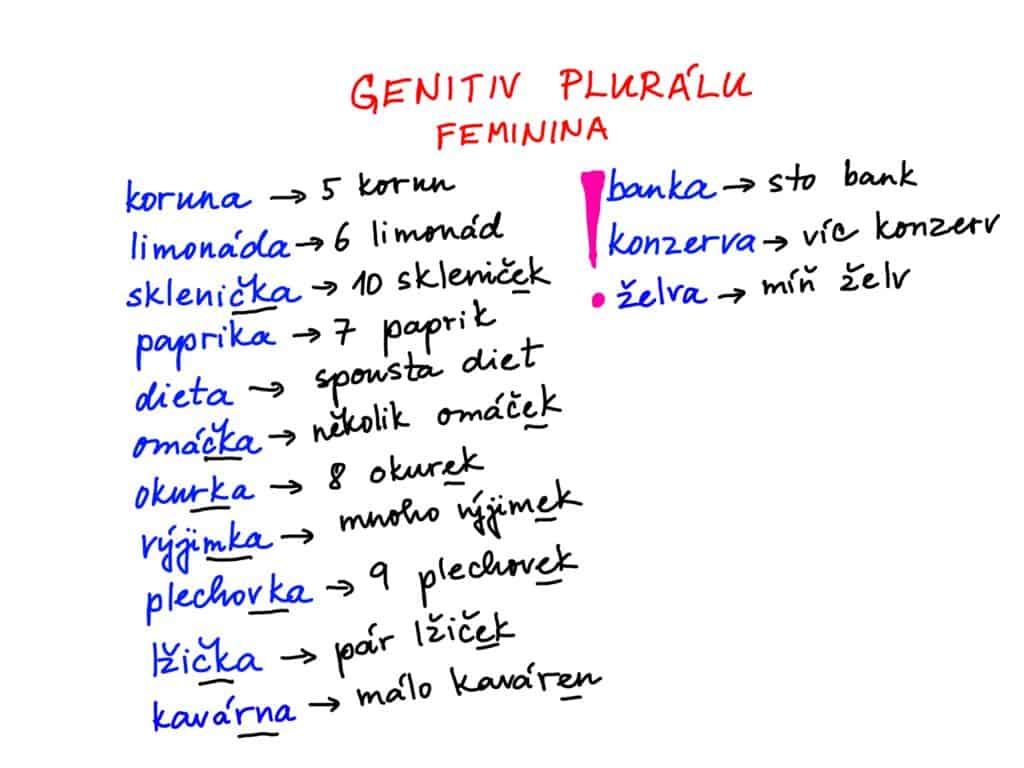 GENITIV PLURÁLU
FEMININA
koruna → 5 korun
limonáda → 6 limonád
sklenička → 10 skleniček
paprika → 7 paprik
dieta → spousta diet
omáčka → několik omáček
okurka → 8 okurek
výjimka → mnoho výjimek
plechovka → 9 plechovek
lžička → pár lžiček
kavárna → málo kaváren
! banka → sto bank
konzerva → víc konzerv
želva → míň želv